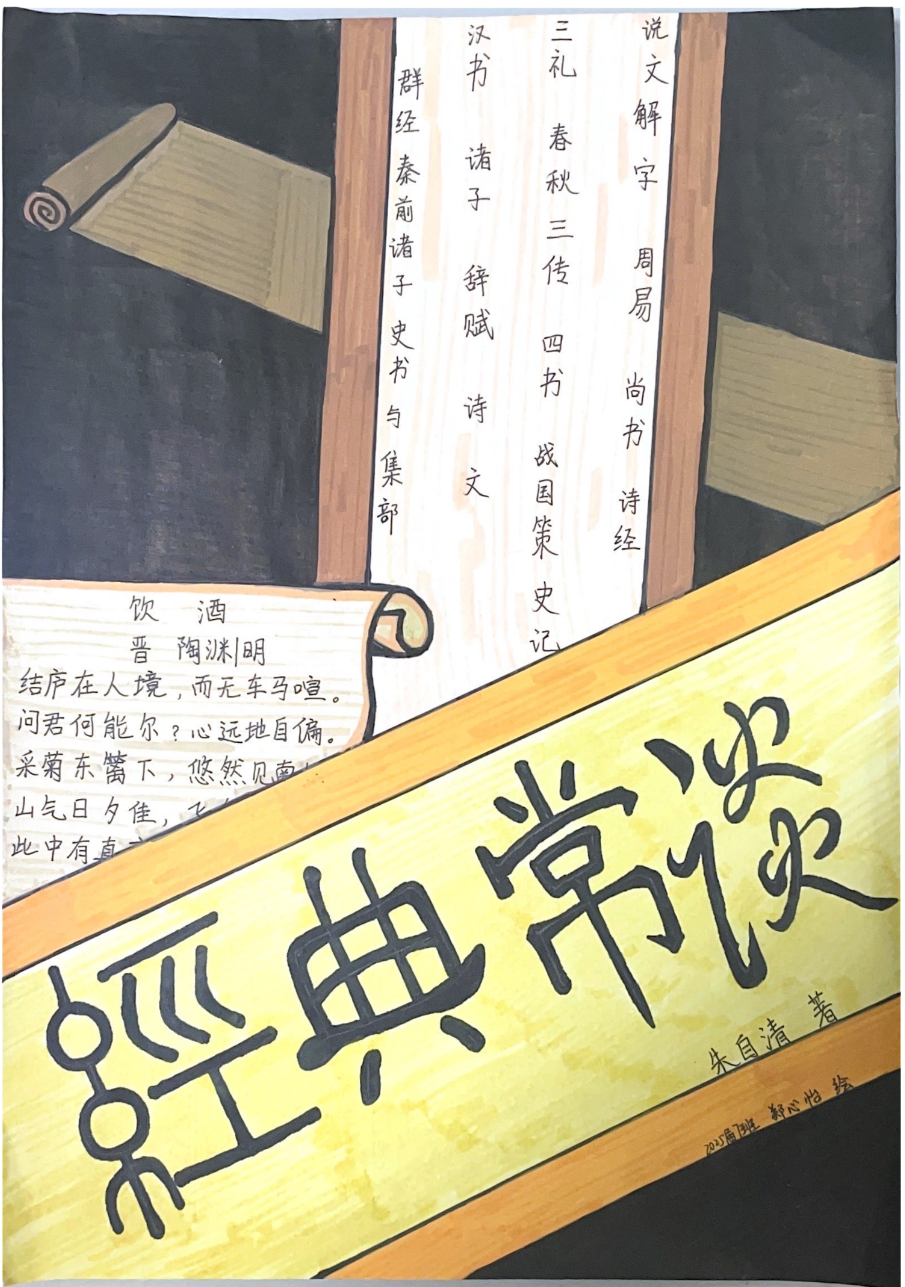 说文解字 周易 尚书 诗经
三礼 春秋三传 四书 战国策 史记
汉书 诸子 辞赋 诗 文
群经 秦前诸子 史书与集部
饮 酒
晋 陶渊明
结庐在人境，而无车马喧。
问君何能尔？心远地自偏。
采菊东篱下，悠然见南
山气日夕佳，飞
此中有真
經典常谈
朱自清 著
2025届 班 郑心怡 绘